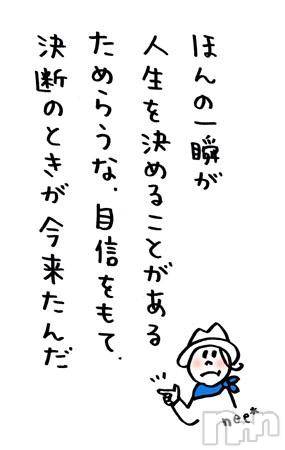 ほんの一瞬が
人生を決めることがある
ためらうな.自信をもて.
決断のときが今来たんだ
nee*